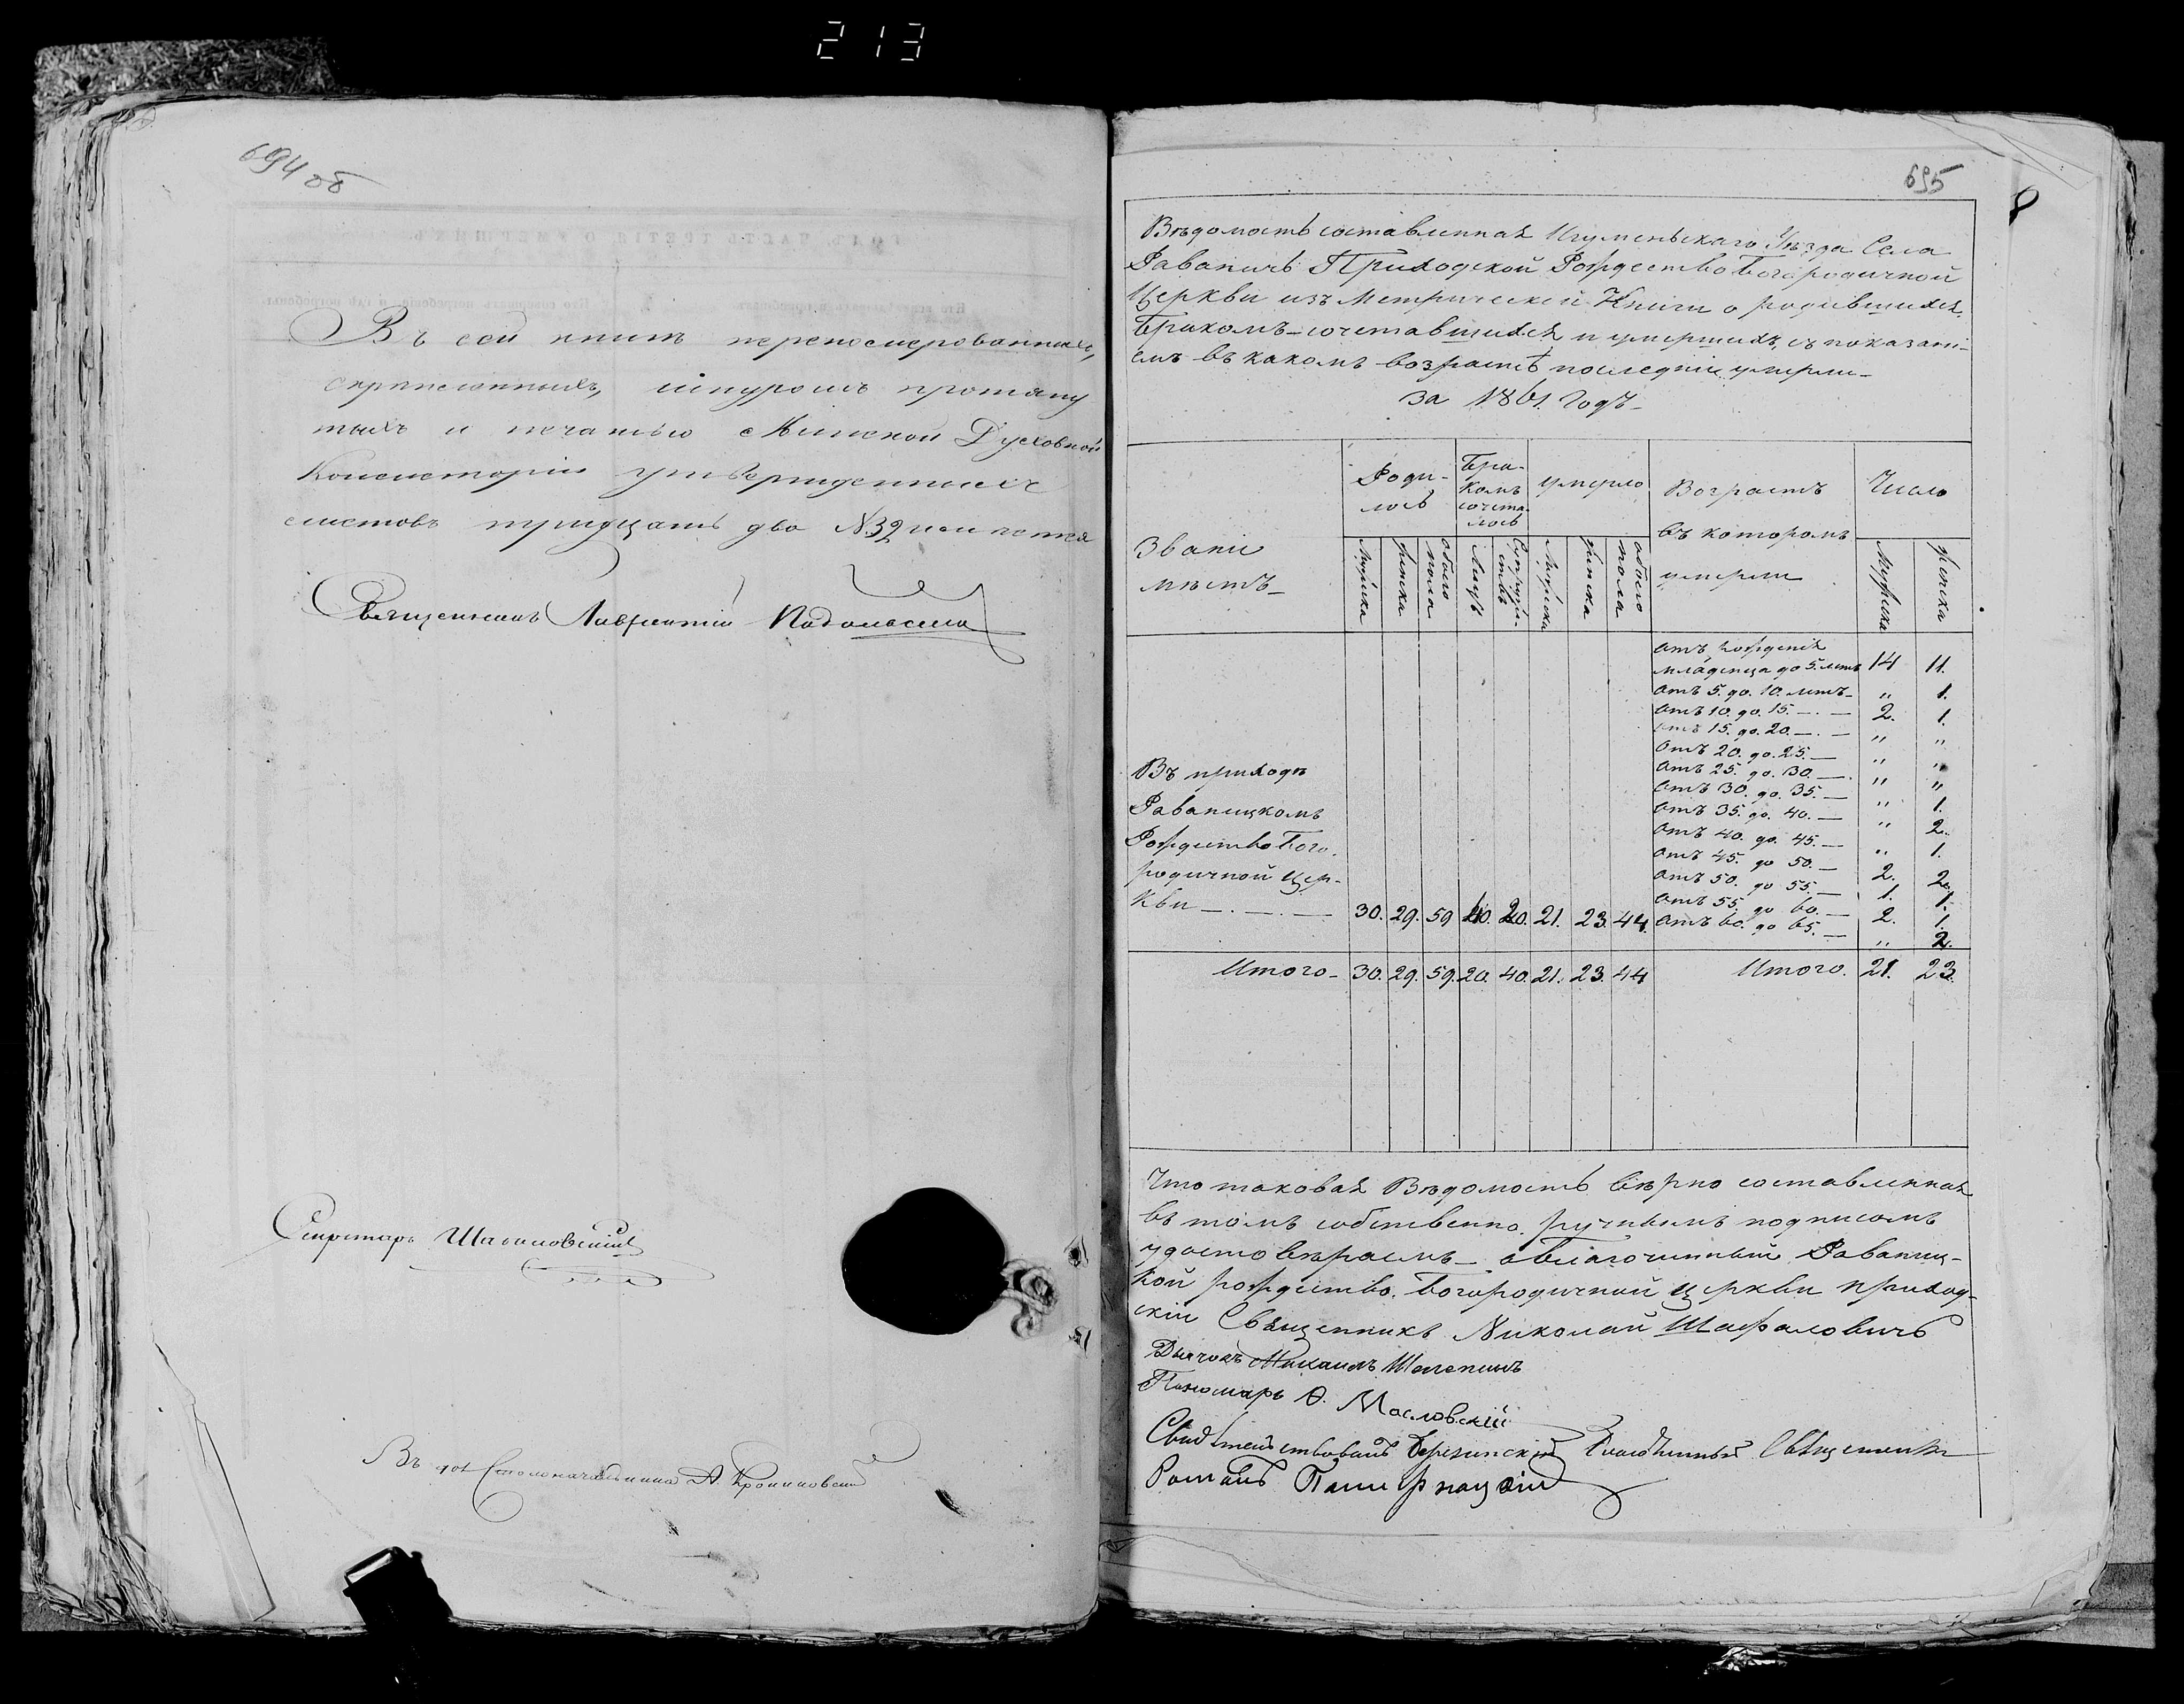 213
694 об
Въ сей книгѣ перенумерованныхъ,
скрѣпленныхъ, шнуромъ протяну
тыхъ и печатью Минской Духовной
Консисторіи утвержденныхъ
листовъ тридцать два №32
Священникъ Лаврентій
Секретарь
Въ дол Столоначальника А.
695
Вѣдомость составленная Игуменьскаго Уѣзда Села
Раваничъ Приходской Рождество Богородичной
Церкви изъ Метрической Книги о родившихся,
Бракомъ-сочетавшихся и умершихъ, съ показані-
емъ въ какомъ возрастѣ последніе умерли-
За 1861. Годъ-
Званіе
мѣстъ-
Роди-
лось
Бра-
комъ
сочета-
лось
умерло
Возрастъ
въ которомъ
умерли
Число
Мужска
женска
обоего пола
Лицъ
Супруж-
ствъ
Мужска
женска
обоего пола
Мужска
женска
отъ рожденія
младенца до 5. летъ 14 11.
отъ 5. до. 10. летъ- " 1.
отъ 10. до. 15. — 2. 1.
отъ 15. до. 20. — " "
отъ 20. до. 25. — " "
отъ 25. до. 30. — " "
отъ 30. до. 35. — " 1.
отъ 35. до. 40. — " 2.
отъ 40. до. 45. — " 1.
отъ 45. до 50. — 2. 2.
отъ 50. до 55. — 1. 1.
отъ 55. до 60. — 2. 1.
отъ 60. до 65. — " 2.
Въ приходѣ
Раваницкомъ
Рождество Бого-
родичной Цер-
кви — 30. 29. 59 40. 20. 21. 23. 44.
Итого- 30. 29. 59. 20. 40. 21. 23. 44 Итого. 21. 23.
Что таковая Вѣдомость вѣрно составленная
въ томъ собственно. ручнымъ подписомъ
удостовѣраемъ- Раваниц-
кой рождество. Богородичной церкви приход-
скій Священникъ Николай Шафаловичъ
Дьячокъ Михаилъ
Пономарь Ѳ. Масловскій
Свидѣтельствовалъ Березинскій Благочинный Священникъ
Романъ